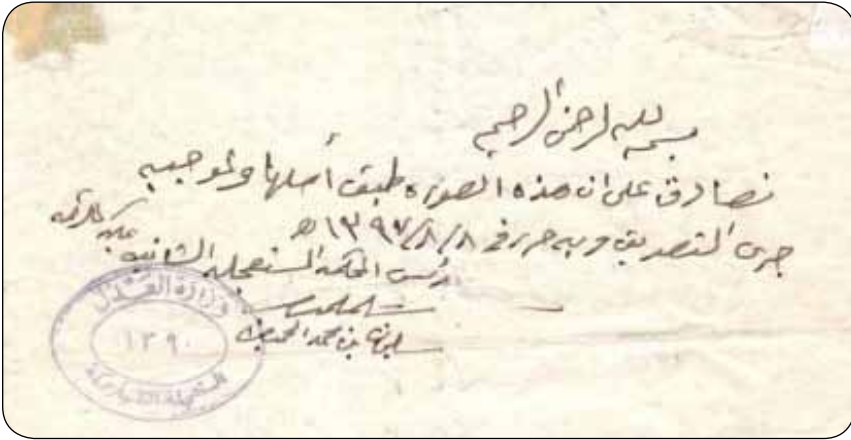 بسم الله الرحمن الرحيم
نصادق على ان هذه الصوره طبق أصلها ولموجبه
جرى التصديق وبه حرر في ١٣٩٧/٨/٨ هـ
رئيس المحكمة المستعجلة الثانية
سليمان بن محمد
وزارة العدل
١٣٩٠